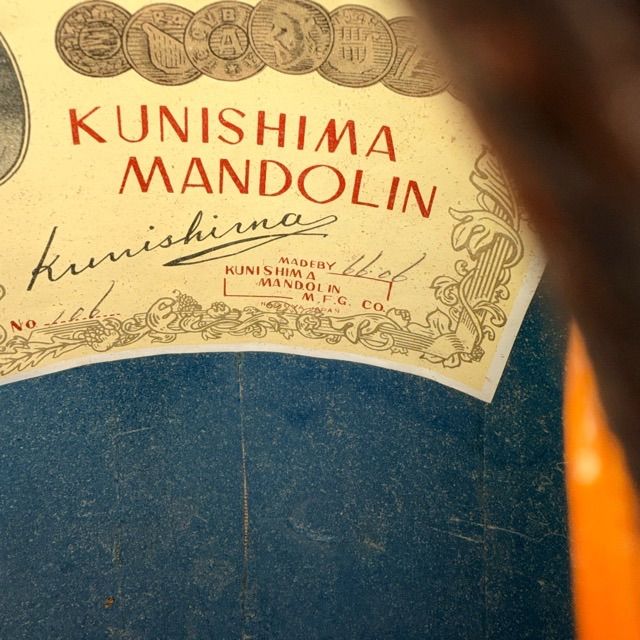 KUNISHIMA
MANDOLIN
Kunishima
MADE BY
KUNISHIMA
MANDOLIN
M.F.G. CO.
No 166